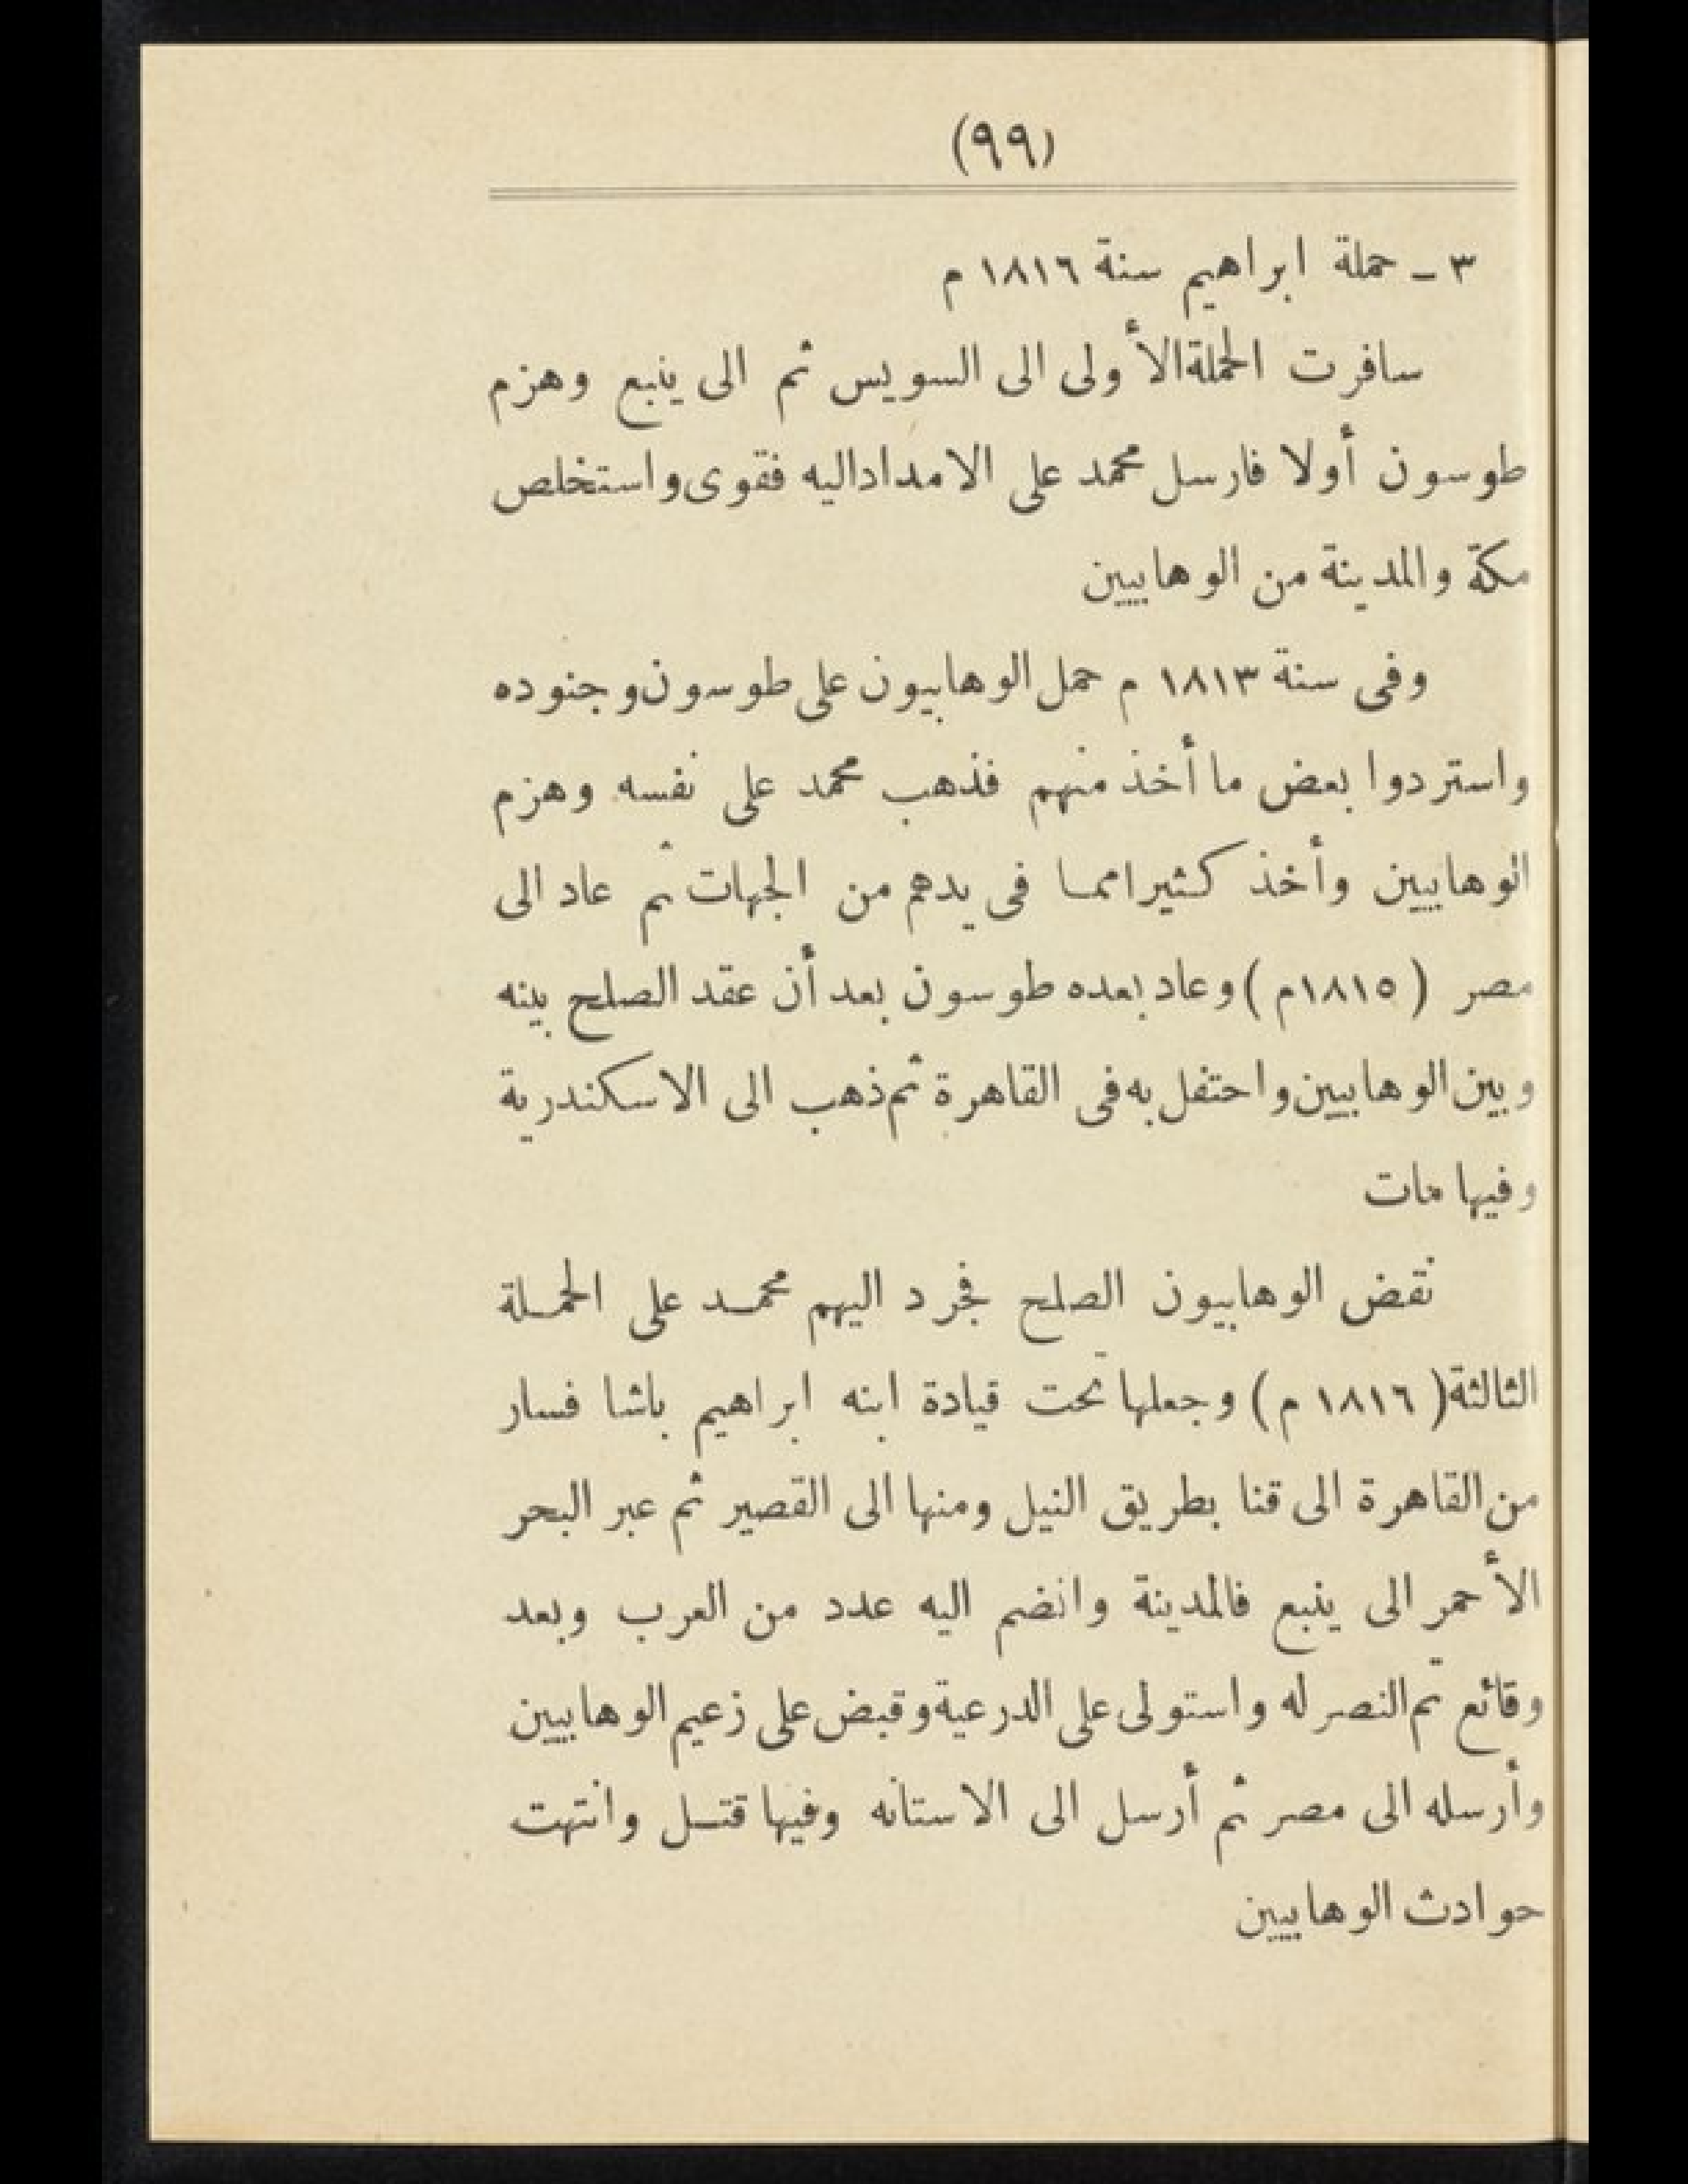 (٩٩)
٣ - حملة ابراهيم سنة ١٨١٦ م
سافرت الحملة الأولى الى السويس ثم الى ينبع وهزم
طوسون أولا فارسل محمد على الامداداليه فقوى واستخلص
مكة والمدينة من الوهابيين
وفى سنة ١٨١٣ م حمل الوهابيون على طوسون وجنوده
واستردوا بعض ما أخذ منهم فذهب محمد على نفسه وهزم
الوهابيين وأخذ كثيرا مما فى يدهم من الجهات ثم عاد الى
مصر ( ١٨١٥م ) وعاد بعده طوسون بعد أن عقد الصلح بينه
وبين الوهابيين واحتفل به فى القاهرة ثم ذهب الى الاسكندرية
وفيها مات
نقض الوهابيون الصلح فجرد اليهم محمد على الحملة
الثالثة ( ١٨١٦ م ) وجعلها تحت قيادة ابنه ابراهيم باشا فسار
من القاهرة الى قنا بطريق النيل ومنها الى القصير ثم عبر البحر
الأحمر الى ينبع فالمدينة وانضم اليه عدد من العرب وبعد
وقائع تم النصر له واستولى على الدرعية وقبض على زعيم الوهابيين
وأرسله الى مصر ثم أرسل الى الاستانه وفيها قتل وانتهت
حوادث الوهابيين